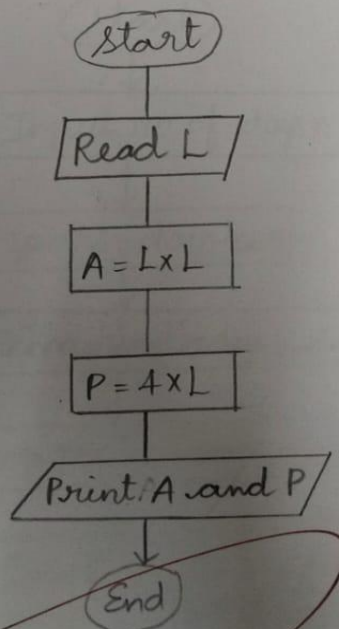 Start
Read L
A = L x L
P = 4 x L
Print A and P
End